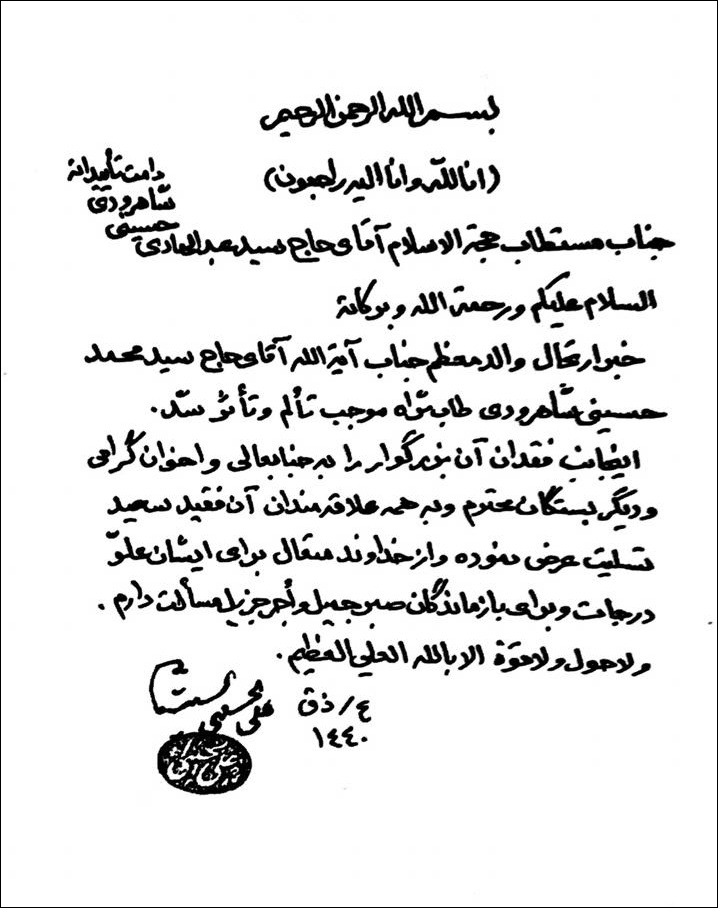 بسم الله الرحمن الرحیم
(انا للّه وانا الیه راجعون)
جناب مستطاب حجة الاسلام آقای حاج سید عبدالهادی حسینی شاهرودی دامت تأییداته
السلام علیکم ورحمة الله وبرکاته
خبر ارتحال والد معظم جناب آیة الله آقای حاج سید محمد
حسینی شاهرودی طاب ثراه موجب تألم وتأثر شد.
اینجانب فقدان آن بزرگوار را به جنابعالی واخوان گرامی
ودیگر بستگان محترم وبه همه علاقه مندان آن فقید سعید
تسلیت عرض نموده واز خداوند متعال برای ایشان علوّ
درجات وبرای بازماندگان صبر جمیل وأجر جزیل مسألت دارم.
ولا حول ولا قوّة الا بالله العلي العظیم.
٤/ ذق
١٤٤٠
علي الحسیني السیستاني